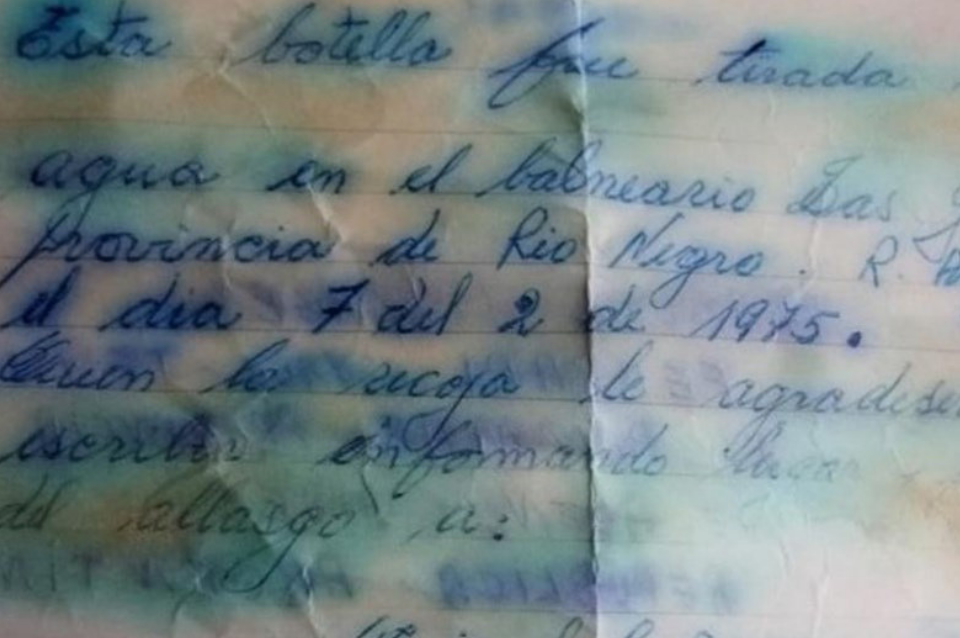 Esta botella fue tirada
agua en el balneario Las
Provincia de Rio Negro. R.
el dia 7 del 2 de 1975.
Quien la recoja le agradese
escribir informando lugar
del allasgo a: